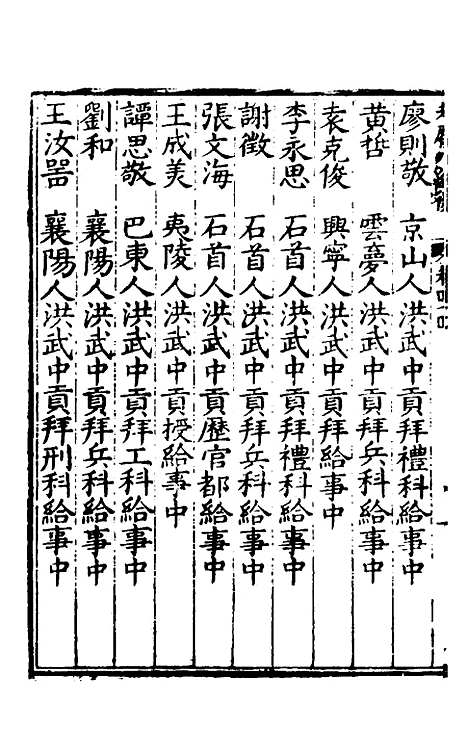 廖則敬 京山人洪武中貢拜禮科給事中
黃哲 雲夢人洪武中貢拜兵科給事中
袁克俊 興寧人洪武中貢拜給事中
李永思 石首人洪武中貢拜禮科給事中
謝徵 石首人洪武中貢拜兵科給事中
張文海 石首人洪武中貢歷官都給事中
王成美 夷陵人洪武中貢授給事中
譚思敬 巴東人洪武中貢拜工科給事中
劉和 襄陽人洪武中貢拜兵科給事中
王汝器 襄陽人洪武中貢拜刑科給事中